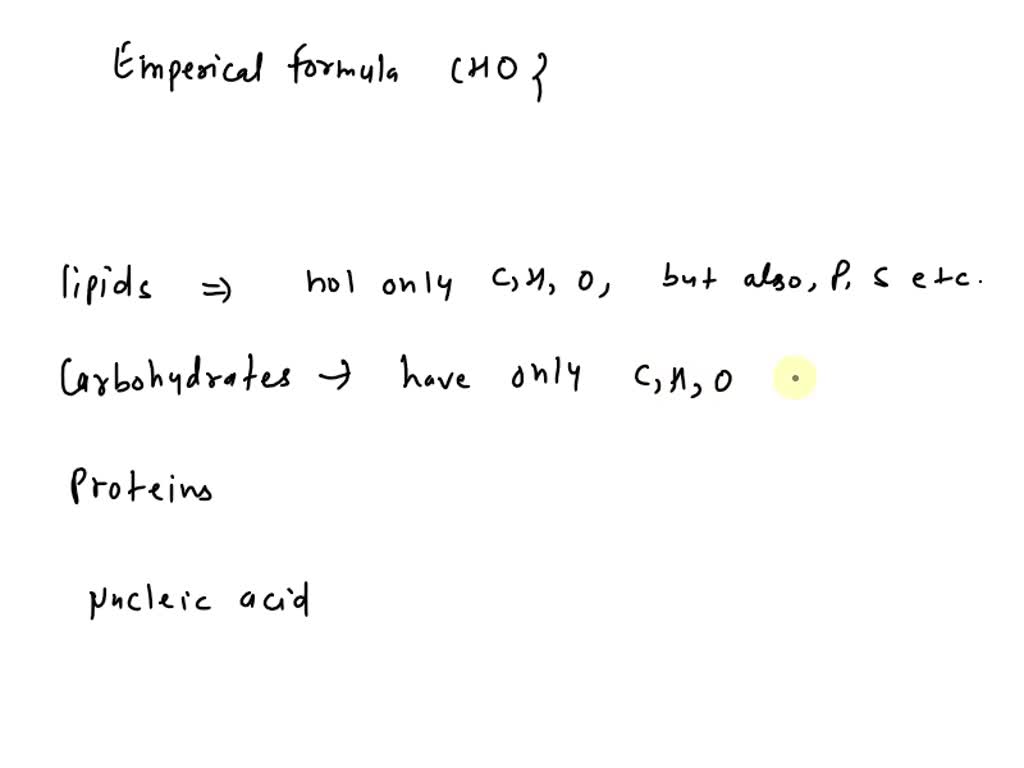 Emperical formula CHO}
lipids ⇒ not only C, H, O, but also, P, S etc.
Carbohydrates → have only C, H, O
Proteins
Nucleic acid